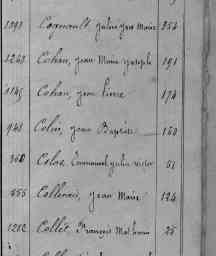 1093 Cognault Julien Jean Marie 254
1243 Cohan, Jean Marie Joseph 191
1145 Cohan, Jean Pierre 174
943 Colin, Jean Baptiste 150
360 Colas, Emmanuel Julien Victor 51
855 Collenais, Jean Marie 124
1212 Collet, François Mathurin 25